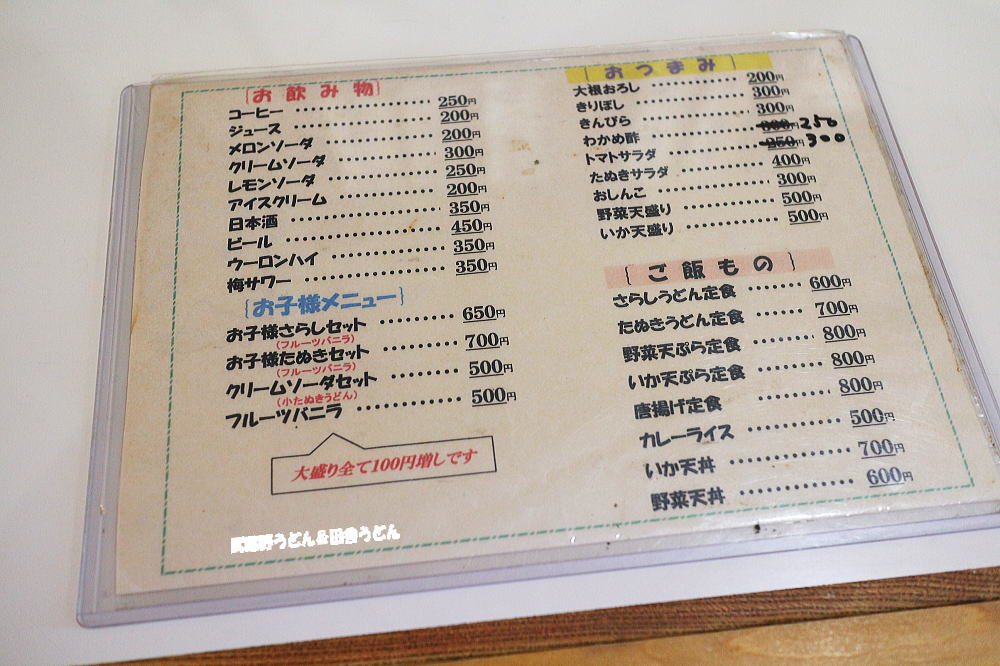 お飲み物
コーヒー ………… 250円
ジュース ………… 200円
メロンソーダ ………… 200円
クリームソーダ ………… 300円
レモンソーダ ………… 250円
アイスクリーム ………… 200円
日本酒 ………… 350円
ビール ………… 450円
ウーロンハイ ………… 350円
梅サワー ………… 350円
お子様メニュー
お子様さらしセット ………… 650円
(フルーツバニラ)
お子様たぬきセット ………… 700円
(フルーツバニラ)
クリームソーダセット ………… 500円
(小たぬきうどん)
フルーツバニラ ………… 500円
大盛り全て100円増しです
おつまみ
大根おろし ………… 200円
きりぼし ………… 300円
きんぴら ………… 300円
わかめ酢 ………… 300円 250
トマトサラダ ………… 250円 300
たぬきサラダ ………… 400円
おしんこ ………… 300円
野菜天盛り ………… 500円
いか天盛り ………… 500円
ご飯もの
さらしうどん定食 ………… 600円
たぬきうどん定食 ………… 700円
野菜天ぷら定食 ………… 800円
いか天ぷら定食 ………… 800円
唐揚げ定食 ………… 800円
カレーライス ………… 500円
いか天丼 ………… 700円
野菜天丼 ………… 600円
武蔵野うどん＆田舎うどん